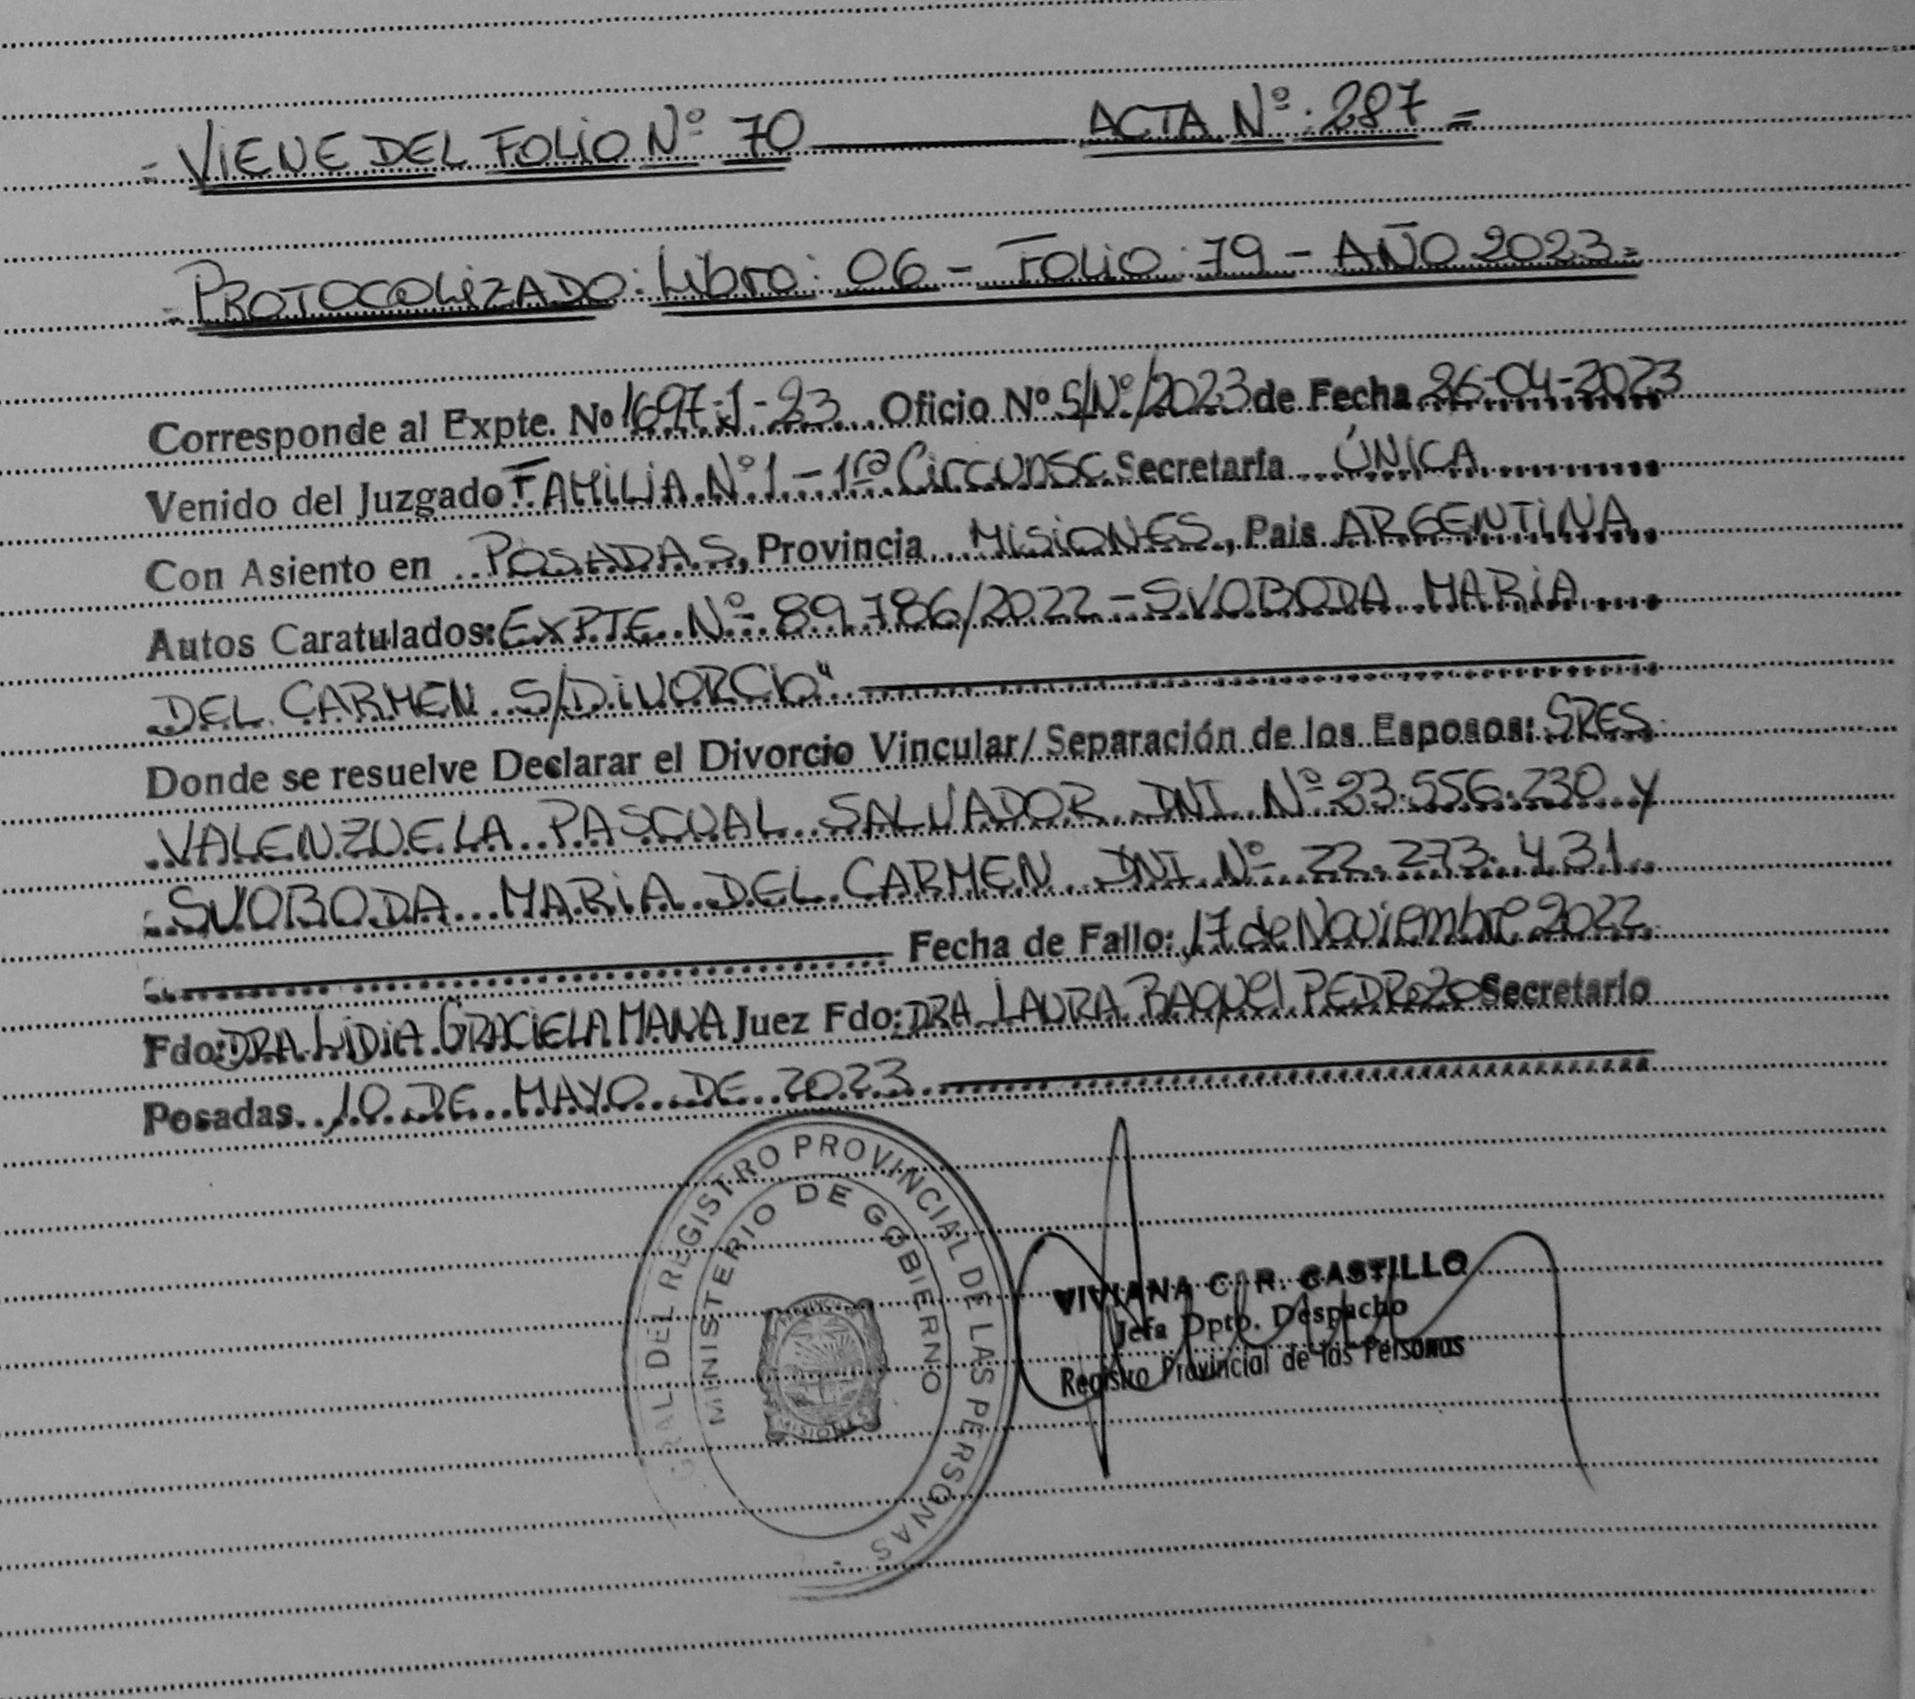 = VIENE DEL FOLIO Nº 70 ACTA Nº: 287 =
= PROTOCOLIZADO: Libro: 06 - FOLIO: 79 - AÑO 2023 =
Corresponde al Expte. Nº 1697-J-23 Oficio Nº S/Nº/2023 de Fecha 26-04-2023
Venido del Juzgado FAMILIA Nº 1 - 1ra Circunsc Secretaría ÚNICA
Con Asiento en POSADAS, Provincia MISIONES, País ARGENTINA
Autos Caratulados: EXPTE Nº 89.786/2022 - SVOBODA MARIA
DEL CARMEN S/DIVORCIO"
Donde se resuelve Declarar el Divorcio Vincular/Separación de los Esposos: SRES
VALENZUELA PASCUAL SALVADOR DNI Nº 23.556.230 y
SVOBODA MARIA DEL CARMEN DNI Nº 22.273.431
Fecha de Fallo: 17 de Noviembre 2022
Fdo: DRA LIDIA GRACIELA MANA Juez Fdo: DRA LAURA RAQUEL PEDROZO Secretario
Posadas 10 DE MAYO DE 2023
GRAL DEL REGISTRO PROVINCIAL DE LAS PERSONAS
MINISTERIO DE GOBIERNO
MISIONES
VIVIANA C. R. CASTILLO
Jefa Dpto. Despacho
Registro Provincial de las Personas